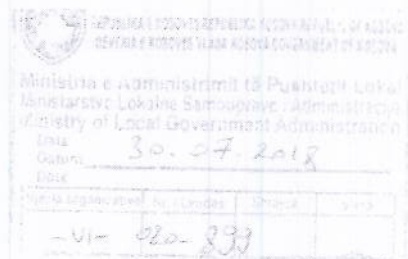 REPUBLIKA E KOSOVËS REPUBLIKA KOSOVA REPUBLIC OF KOSOVO
QEVERIA E KOSOVËS VLADA KOSOVA GOVERNMENT OF KOSOVA
Ministria e Administrimit të Pushtetit Lokal
Ministarstvo Lokalne Samouprave i Administracije
Ministry of Local Government Administration
Data
Datum 30.07.2018
Date
-VI- 020- 899